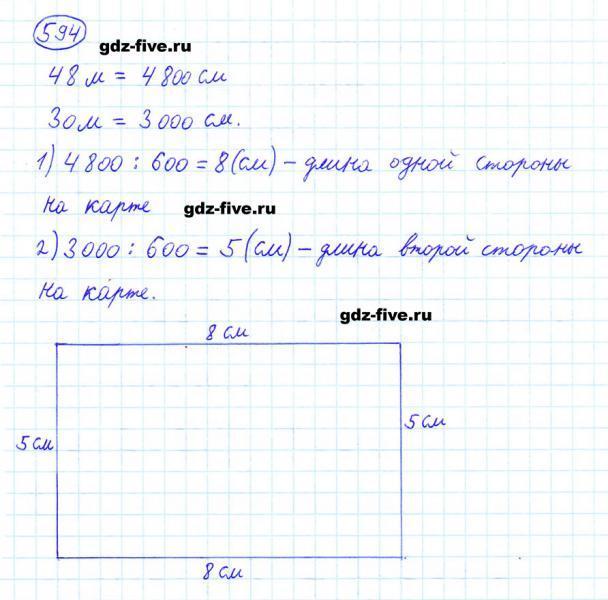 594
gdz-five.ru
48 м = 4800 см
30 м = 3000 см.
1) 4800 : 600 = 8 (см) – длина одной стороны
на карте
gdz-five.ru
2) 3000 : 600 = 5 (см) – длина второй стороны
на карте.
gdz-five.ru
8 см
5 см
5 см
8 см